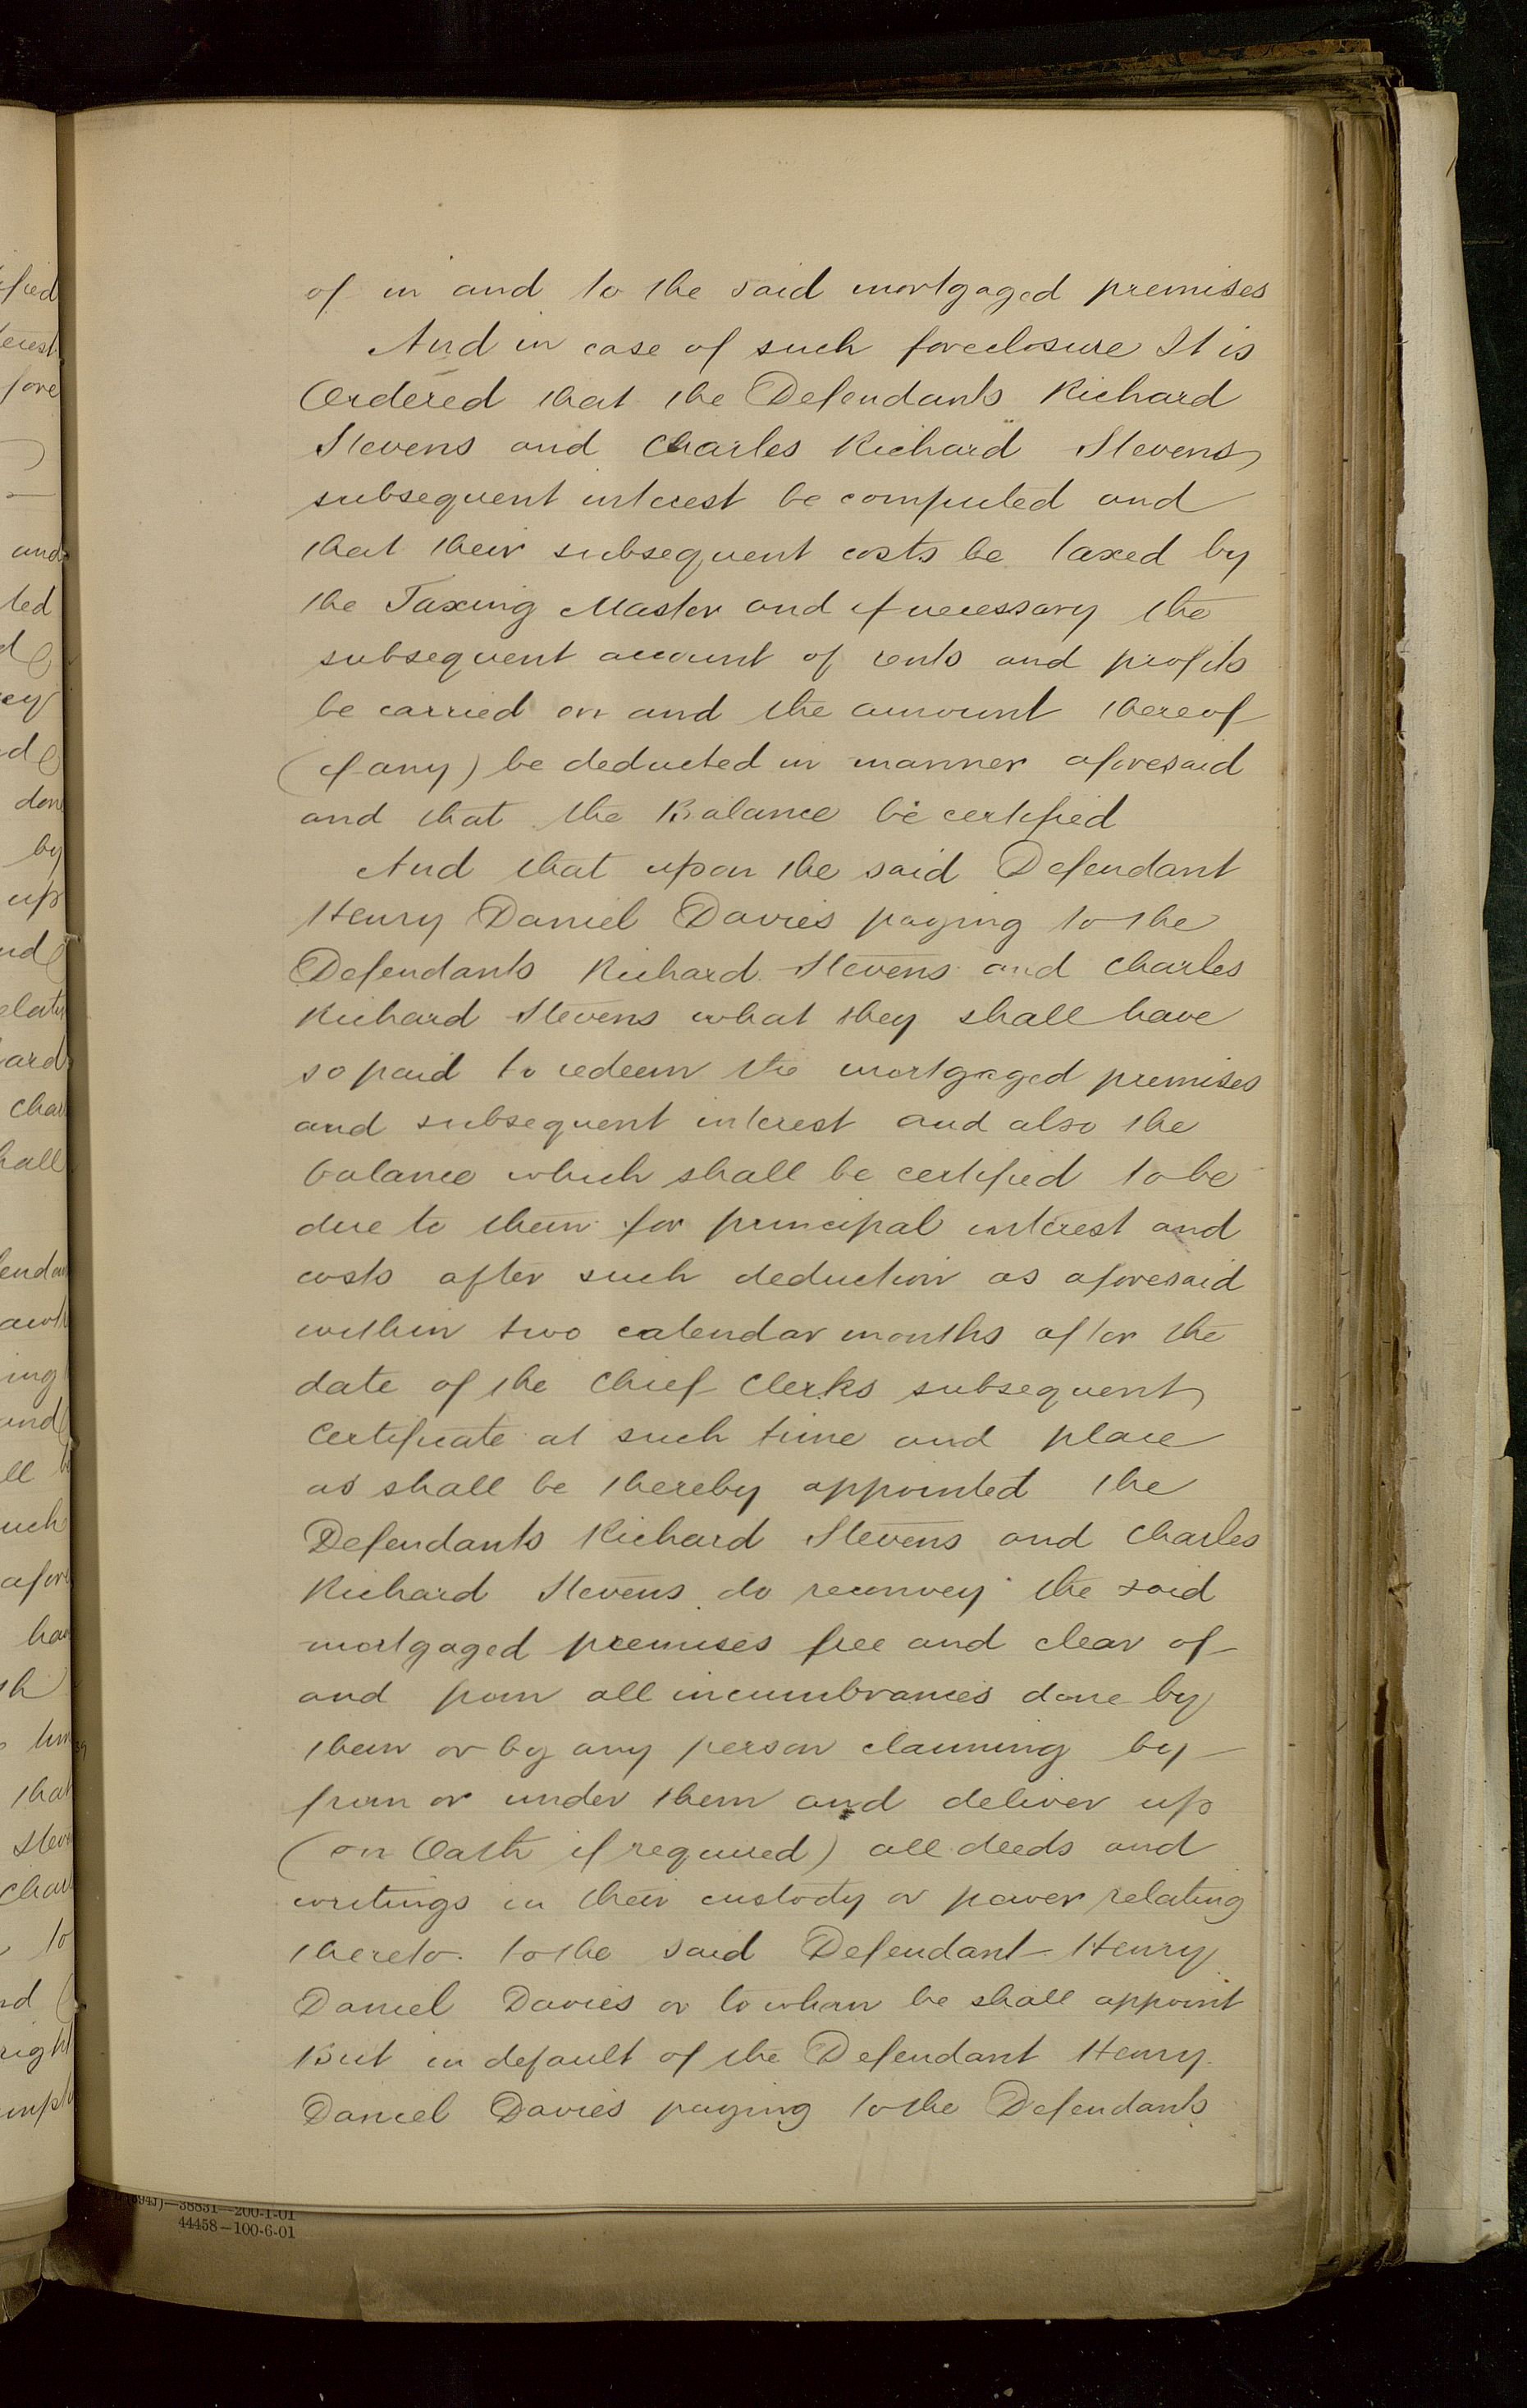 of in and to the said mortgaged premises
And in case of such foreclosure It is
Ordered that the Defendants Richard
Stevens and Charles Richard Stevens
subsequent interest be computed and
that their subsequent costs be taxed by
the Taxing Master and if necessary the
subsequent account of rents and profits
be carried on and the amount thereof
(if any) be deducted in manner aforesaid
and that the Balance be certified
And that upon the said Defendant
Henry Daniel Davies paying to the
Defendants Richard Stevens and Charles
Richard Stevens what they shall have
so paid to redeem the mortgaged premises
and subsequent interest and also the
balance which shall be certified to be
due to them for principal interest and
costs after such deduction as aforesaid
within two calendar months after the
date of the Chief Clerks subsequent
Certificate at such time and place
as shall be thereby appointed the
Defendants Richard Stevens and Charles
Richard Stevens do reconvey the said
mortgaged premises free and clear of
and from all incumbrances done by
them or by any person claiming by
from or under them and deliver up
(on Oath if required) all deeds and
writings in their custody or power relating
thereto to the said Defendant Henry
Daniel Davies or to whom he shall appoint
But in default of the Defendant Henry
Daniel Davies paying to the Defendants
38831—200-1-01
44458—100-6-01